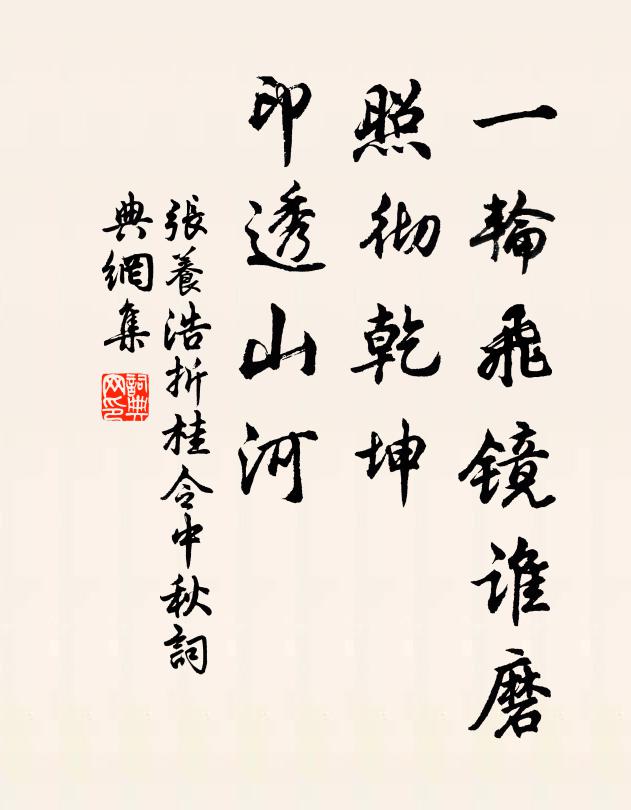 一輪飛镜誰磨
照彻乾坤
印透山河
張養浩折桂令中秋詞
典網集
詞典网印